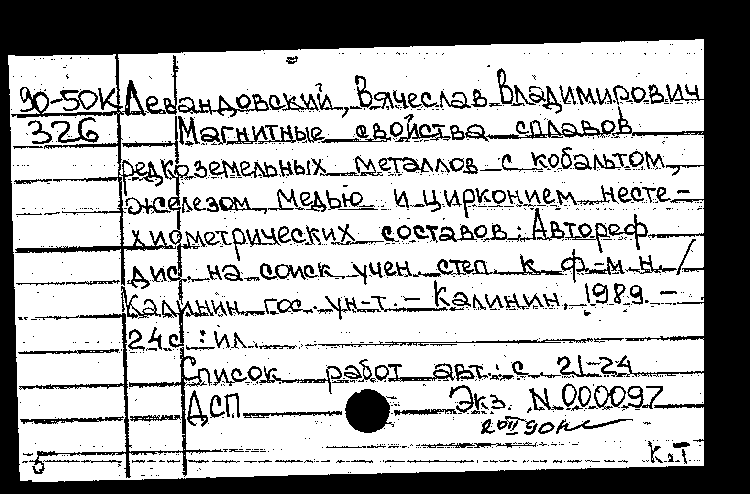 90-50К Левандовский, Вячеслав Владимирович
326 Магнитные свойства сплавов
редкоземельных металлов с кобальтом,
железом, медью и цирконием несте-
хиометрических составов: Автореф.
дис. на соиск. учен. степ. к. ф.-м. н. /
Калинин. гос. ун-т. - Калинин, 1989. -
24с.: ил.
Список работ авт.: с. 21-24
ДСП Экз. N 000097
б К.Т